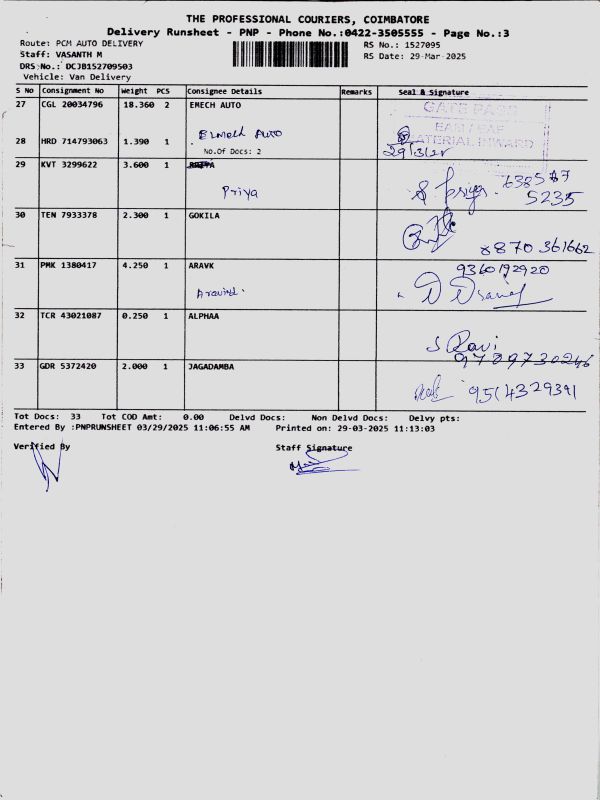 THE PROFESSIONAL COURIERS, COIMBATORE
Delivery Runsheet - PNP - Phone No.:0422-3505555 - Page No.:3
Route: PCM AUTO DELIVERY
RS No.: 1527095
Staff: VASANTH M
RS Date: 29-Mar-2025
DRS No.: DCJB152709503
Vehicle: Van Delivery
S No Consignment No Weight PCS Consignee Details Remarks Seal & Signature
27 CGL 20034796 18.360 2 EMECH AUTO
GATE PASS
MATERIAL INWARD
28 HRD 714793063 1.390 1 Emech Auto
No.Of Docs: 2
29/3/25
29 KVT 3299622 3.600 1
Priya
S. Priya
638577
5235
30 TEN 7933378 2.300 1 GOKILA
8870 361662
31 PMK 1380417 4.250 1 ARAVK
9360192920
Aravind.
32 TCR 43021087 0.250 1 ALPHAA
S Ravi
9789730246
33 GDR 5372420 2.000 1 JAGADAMBA
9514329391
Tot Docs: 33 Tot COD Amt: 0.00 Delvd Docs: Non Delvd Docs: Delvy pts:
Entered By :PNPRUNSHEET 03/29/2025 11:06:55 AM Printed on: 29-03-2025 11:13:03
Verified By
Staff Signature